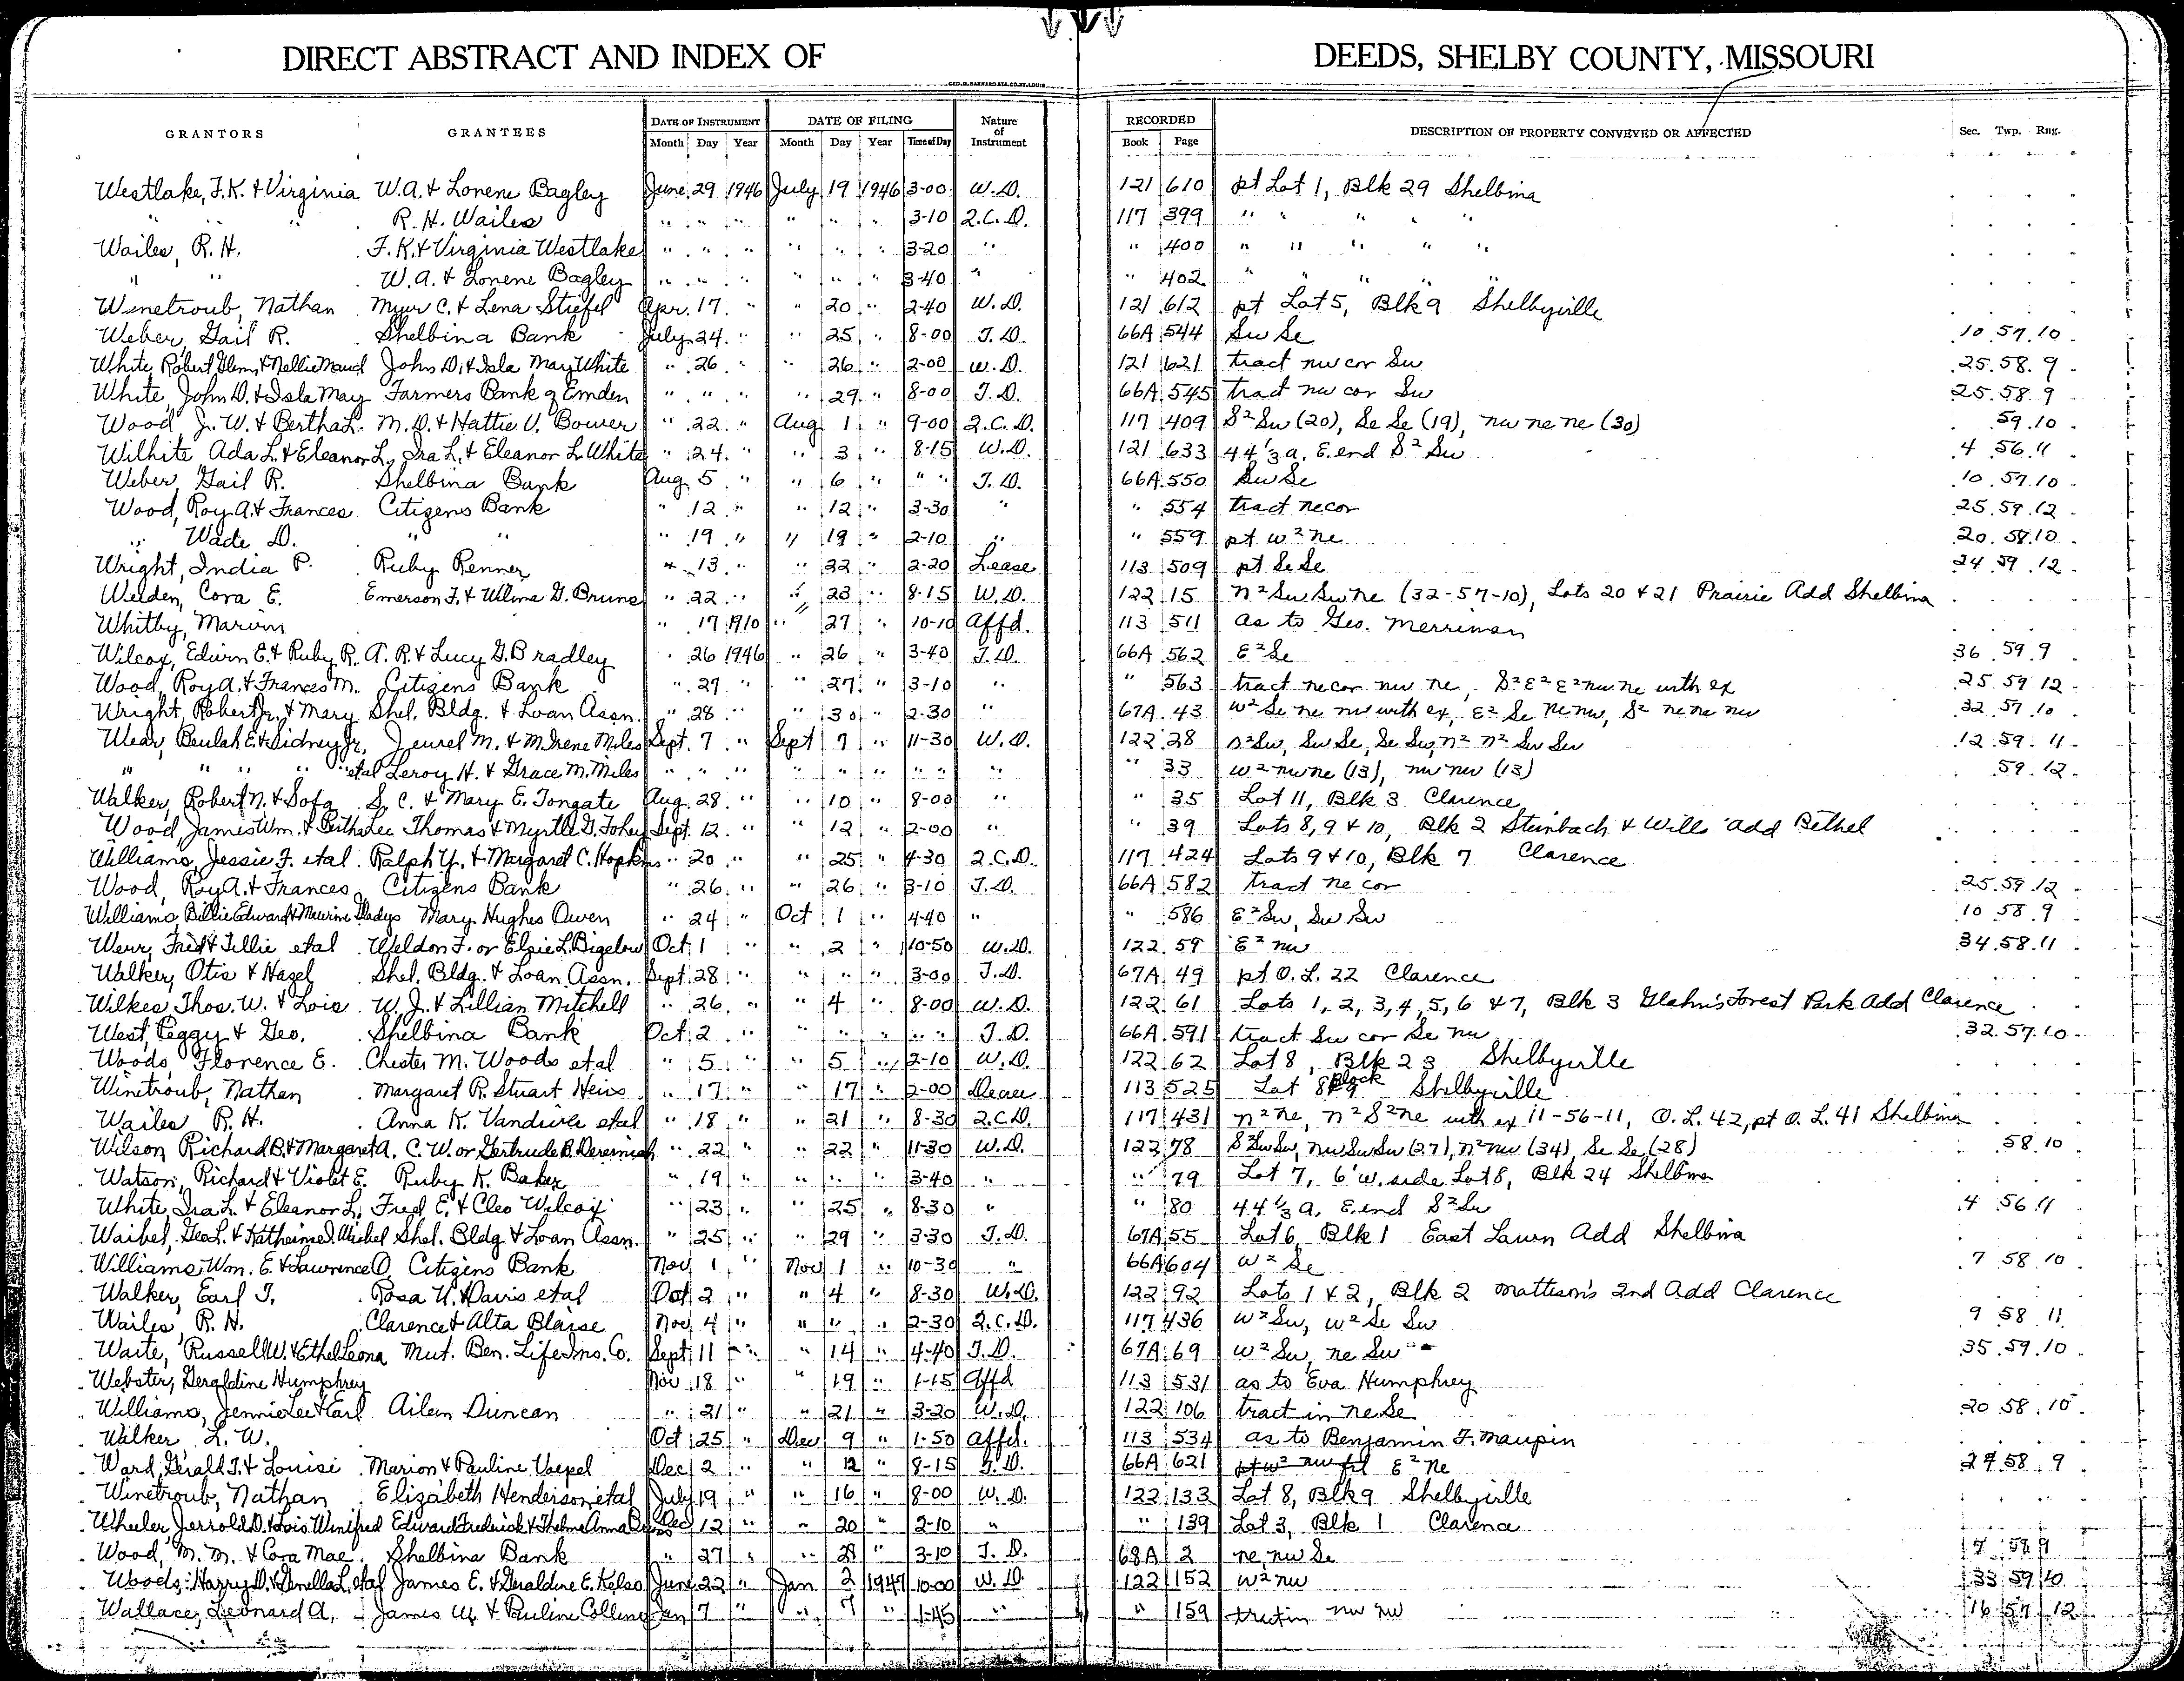 DIRECT ABSTRACT AND INDEX OF DEEDS, SHELBY COUNTY, MISSOURI
GEO. D. BARNARD STA. CO. ST. LOUIS
GRANTORS GRANTEES DATE OF INSTRUMENT DATE OF FILING Nature of Instrument RECORDED DESCRIPTION OF PROPERTY CONVEYED OR AFFECTED Sec. Twp. Rng.
Month Day Year Month Day Year Time of Day Book Page
Westlake, F.K. & Virginia W.A. & Lorene Bagley June 29 1946 July 19 1946 3-00 W.D. 121 610 pt Lot 1, Blk 29 Shelbina
" " " R.H. Wailes " " " " " " 3-10 Q.C.D. 117 399 " " " " "
Wailes, R.H. F.K. & Virginia Westlake " " " " " " 3-20 " " 400 " " " " "
" " W.A. & Lorene Bagley " " " " " " 3-40 " " 402 " " " " "
Winetroub, Nathan Myer C. & Lena Stiefel Apr. 17 " " 20 " 2-40 W.D. 121 612 pt Lot 5, Blk 9 Shelbyville
Weber, Gail R. Shelbina Bank July 24 " " 25 " 8-00 T.D. 66A 544 Sw Se 10 57 10
White, Robert Glenn & Nellie Maud John D. & Isla May White " 26 " " 26 " 2-00 W.D. 121 621 tract nw cor Sw 25 58 9
White, John D. & Isla May Farmers Bank of Emden " " " " 29 " 8-00 T.D. 66A 545 tract nw cor Sw 25 58 9
Wood, J.W. & Bertha L. M.D. & Hattie V. Bower " 22 " Aug 1 " 9-00 Q.C.D. 117 409 S² Sw (20), Se Se (19), nw ne ne (30) 59 10
Wilhite Ada L. & Eleanor L. Ira L. & Eleanor L. White " 24 " " 3 " 8-15 W.D. 121 633 44⅓ a. E. end S² Sw 4 56 11
Weber, Gail R. Shelbina Bank Aug 5 " " 6 " " " T.D. 66A 550 Sw Se 10 57 10
Wood, Roy A. & Frances Citizens Bank " 12 " " 12 " 3-30 " " 554 tract ne cor 25 59 12
" Wade D. " " " 19 " " 19 " 2-10 " " 559 pt w² ne 20 58 10
Wright, India P. Ruby Renner " 13 " " 22 " 2-20 Lease 113 509 pt Se Se 24 59 12
Welden, Cora E. Emerson F. & Wilma G. Bruns " 22 " " 23 " 8-15 W.D. 122 15 n² Sw Sw ne (32-57-10), Lots 20 & 21 Prairie Add Shelbina
Whitby, Marvin " 17 1910 " 27 " 10-10 Affd. 113 511 as to Geo. Merriman
Wilcox, Edwin E. & Ruby R. A.R. & Lucy G. Bradley " 26 1946 " 26 " 3-40 T.D. 66A 562 E² Se 36 59 9
Wood, Roy A. & Frances M. Citizens Bank " 27 " " 27 " 3-10 " " 563 tract ne cor nw ne, S² E² E² nw ne with ex 25 59 12
Wright, Robert Jr. & Mary Shel. Bldg. & Loan Assn. " 28 " " 30 " 2-30 " 67A 43 w² Se ne nw with ex, E² Se ne nw, S² ne ne nw 32 57 10
Wear, Beulah E. & Sidney Jr. Jewel M. & M. Irene Miles Sept. 7 " Sept 7 " 11-30 W.D. 122 28 S² Sw, Sw Se, Se Sw, n² n² Sw Sw 12 59 11
" " " " etal Leroy H. & Grace M. Miles " " " " " " " " " " 33 w² nw ne (13), nw nw (13) 59 12
Walker, Robert N. & Sofa S.C. & Mary E. Tongate Aug 28 " " 10 " 8-00 " " 35 Lot 11, Blk 3 Clarence
Wood, James Wm. & Bertha Lee Thomas & Myrtle G. Fohey Sept. 12 " " 12 " 2-00 " " 39 Lots 8, 9 & 10, Blk 2 Steinbach & Wills add Bethel
Williams, Jessie F. etal Ralph Y. & Margaret C. Hopkins " 20 " " 25 " 4-30 Q.C.D. 117 424 Lots 9 & 10, Blk 7 Clarence
Wood, Roy A. & Frances Citizens Bank " 26 " " 26 " 3-10 T.D. 66A 582 tract ne cor 25 59 12
Williams Billie Edward & Maurine Gladys Mary Hughes Owen " 24 " Oct 1 " 4-40 " " 586 E² Sw, Sw Sw 10 58 9
Werr, Fred & Tillie etal Weldon F. or Elsie L. Bigelow Oct 1 " " 2 " 10-50 W.D. 122 59 E² nw 34 58 11
Walker, Otis & Hazel Shel. Bldg. & Loan Assn. Sept. 28 " " " " 3-00 T.D. 67A 49 pt O.L. 22 Clarence
Wilkes, Thos. W. & Lois W.J. & Lillian Mitchell " 26 " " 4 " 8-00 W.D. 122 61 Lots 1, 2, 3, 4, 5, 6 & 7, Blk 3 Glahn's Forest Park Add Clarence
West, Peggy & Geo. Shelbina Bank Oct 2 " " " " " " T.D. 66A 591 tract Sw cor Se nw 32 57 10
Woods, Florence E. Chester M. Woods etal " 5 " " 5 " 2-10 W.D. 122 62 Lot 8, Blk 23 Shelbyville
Winetroub, Nathan Margaret R. Stuart Heirs " 17 " " 17 " 2-00 Decree 113 525 Lot 8 Block 9 Shelbyville
Wailes R.H. Anna K. Vandiver etal " 18 " " 21 " 8-30 Q.C.D. 117 431 n² ne, n² S² ne with ex 11-56-11, O.L. 42, pt O.L. 41 Shelbina
Wilson Richard B. & Margaret A. C.W. or Gertrude B. " 22 " " 22 " 11-30 W.D. 122 78 S² Sw Sw, nw Sw Sw (27), n² nw (34), Se Se (28) 58 10
Watson, Richard & Violet E. Ruby K. Baker " 19 " " " " 3-40 " " 79 Lot 7, 6' w. side Lot 8, Blk 24 Shelbina
White, Ira L. & Eleanor L. Fred E. & Cleo Wilcox " 23 " " 25 " 8-30 " " 80 44⅓ a. E. end S² Sw 4 56 11
Waibel, Geo L. & Katherine D. Shel. Bldg. & Loan Assn. " 25 " " 29 " 3-30 T.D. 67A 55 Lot 6, Blk 1 East Lawn Add Shelbina
Williams Wm. E. & Lawrence O. Citizens Bank Nov 1 " Nov 1 " 10-30 " 66A 604 w² Se 7 58 10
Walker, Earl T. Rosa U. Davis etal Oct 2 " " 4 " 8-30 W.D. 122 92 Lots 1 & 2, Blk 2 Mattison's 2nd Add Clarence
Wailes, R.H. Clarence & Alta Blaise Nov 4 " " " " 2-30 Q.C.D. 117 436 w² Sw, w² Se Sw 9 58 11
Waite, Russell W. & Ethel Leona Mut. Ben. Life Ins. Co. Sept 11 " " 14 " 4-40 T.D. 67A 69 w² Sw, ne Sw 35 59 10
Webster, Geraldine Humphrey Nov 18 " " 19 " 1-15 Affd 113 531 as to Eva Humphrey
Williams, Jennie Lee & Earl Aileen Duncan " 21 " " 21 " 3-20 W.D. 122 106 tract in ne Se 20 58 10
Walker, L.W. Oct 25 " Dec 9 " 1-50 Affd. 113 534 as to Benjamin F. Maupin
Ward, Gerald T. & Louise Marion & Pauline Vaepel Dec 2 " " 12 " 8-15 T.D. 66A 621 E² ne 29 58 9
Winetroub, Nathan Elizabeth Henderson etal July 19 " " 16 " 8-00 W.D. 122 133 Lot 8, Blk 9 Shelbyville
Wheeler, Jerrold D. & Lois Winifred Edward Frederick & Thelma Anna Dec 12 " " 20 " 2-10 " " 139 Lot 3, Blk 1 Clarence
Wood, M.M. & Cora Mae Shelbina Bank " 27 " " " 3-10 T.D. 68A 2 ne, nw Se 58 9
Woods, Harry D. & Genella L. etal James E. & Geraldine E. Kelso June 22 " Jan 2 1947 10-00 W.D. 122 152 w² nw 33 59 10
Wallace, Leonard A. James W. & Pauline Collins Jan 7 " " 7 " 1-45 " " 159 tract in nw nw 16 57 12